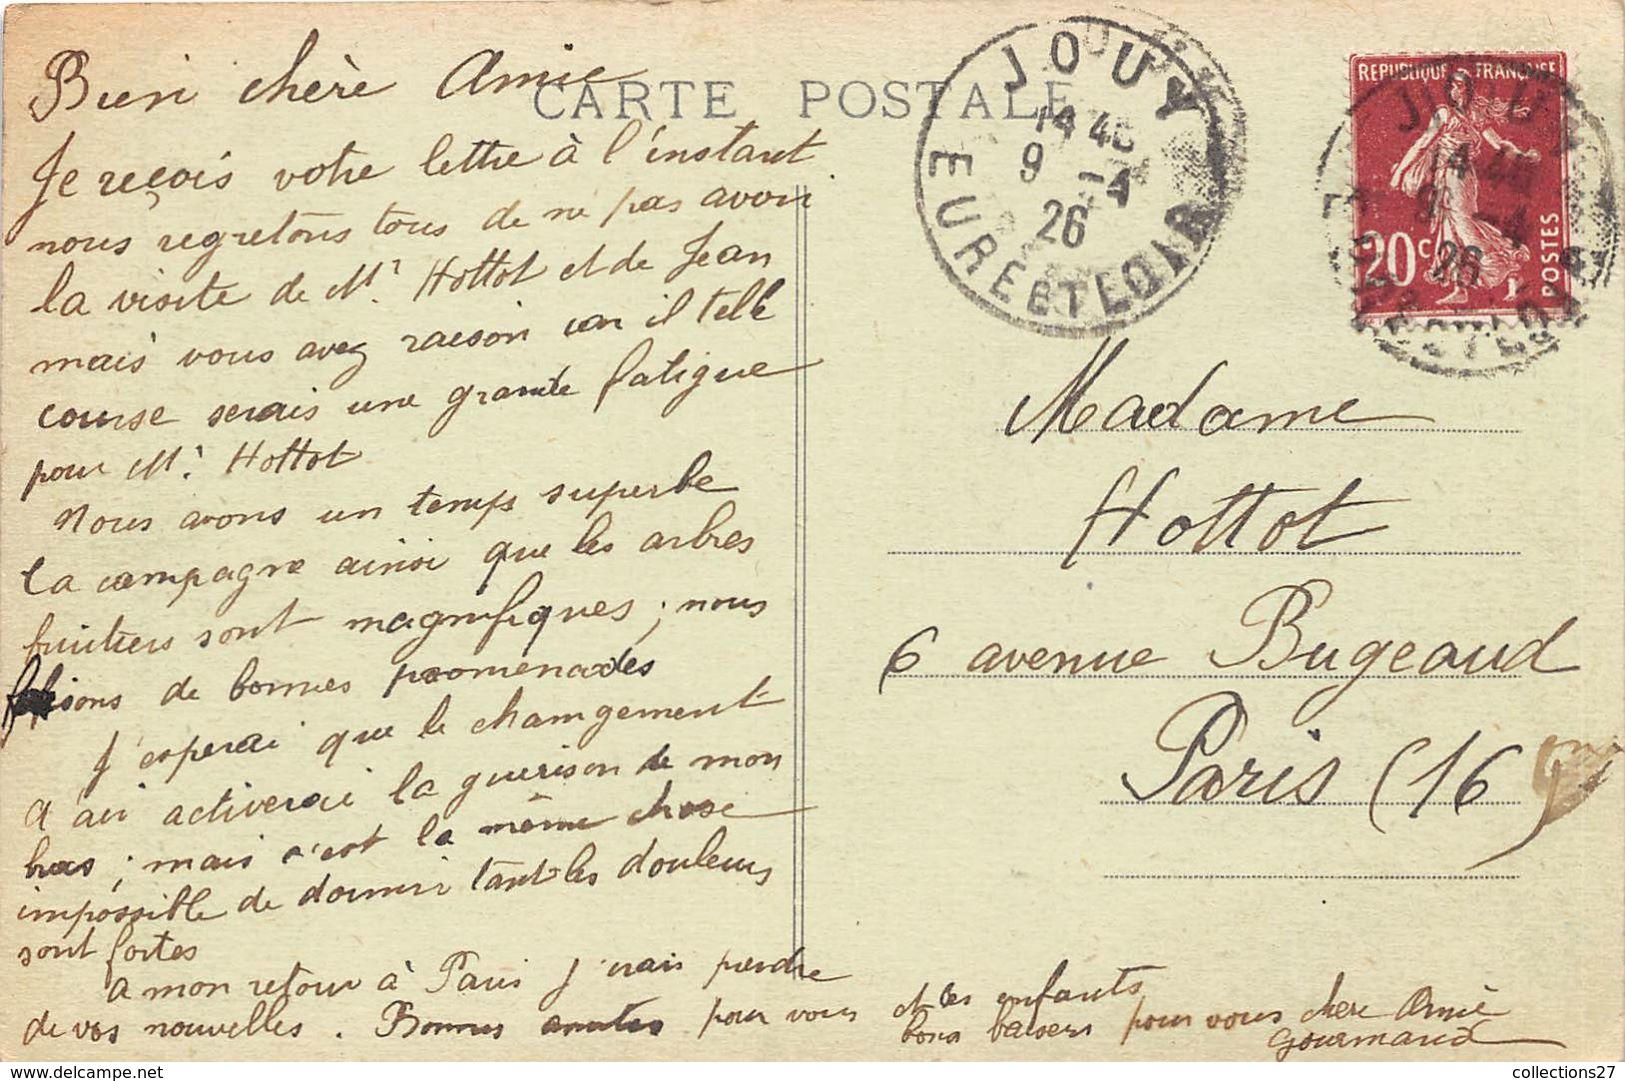 Bien chère Amie
CARTE POSTALE
Je reçois votre lettre à l'instant
nous regretons tous de ne pas avoir
la visite de Mr Hottot et de Jean
mais vous avez raison car il telle
course serais une grande fatigue
pour Mr Hottot
Nous avons un temps superbe
la campagne ainsi que les arbres
fruitiers sont magnifiques ; nous
faisons de bonnes promenades
J'esperai que le changement
d'air activerai la guerison de mon
bras ; mais c'est la même chose
impossible de dormir tant les douleurs
sont fortes
A mon retour à Paris J'irais prendre
de vos nouvelles. Bonnes amities pour vous et les enfants
bons baisers pour vous chère Amie
Gourmand
JOUY
14 45
9 -4
26
EURE ET LOIR
REPUBLIQUE FRANÇAISE
20c
POSTES
JOUY
14 45
9 -4
26
Madame
Hottot
6 avenue Bugeaud
Paris (16 eme)
collections27